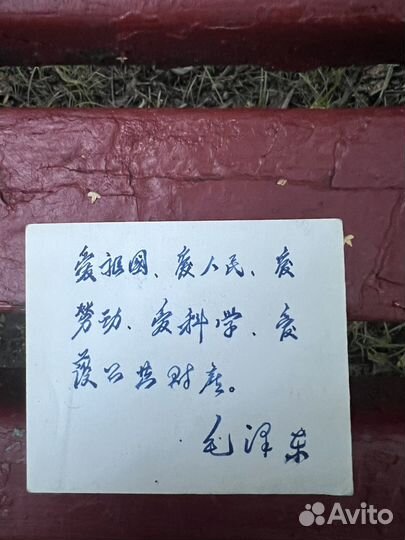 爱祖國、爱人民、爱
劳动、爱科学、爱
護公共财产。
毛泽东
Avito